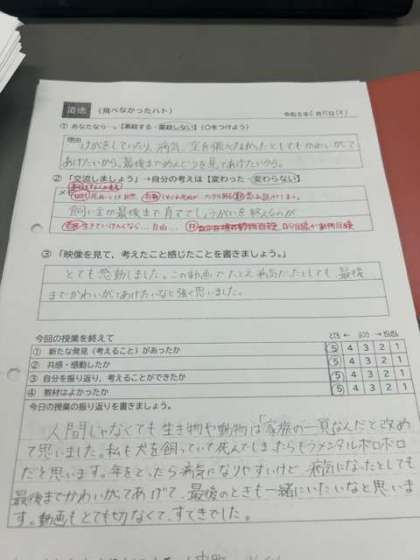 道徳 (飛べなかったハト) 令和5年
① あなたなら…。【薬殺する・薬殺しない】(○をつけよう)
理由
けがをしていたり、病気、空を飛べなかったとしてもかわいがって
あげたいから。最後までめんどうを見てあげたいから。
② 「交流しましょう」→自分の考えは【変わった・変わらない】
飼い主が最後まで育て
③ 「映像を見て、考えたこと感じたことを書きましょう。」
とても感動しました。この動画でたとえ病気だったとしても、最後
までかわいがってあげたいなと強く思いました。
今回の授業を終えて
① 新たな発見(考えること)があったか 5 4 3 2 1
② 共感・感動したか 5 4 3 2 1
③ 自分を振り返り、考えることができたか 5 4 3 2 1
④ 教材はよかったか 5 4 3 2 1
今日の授業の振り返りを書きましょう。
人間じゃなくても生き物や動物は「家族の一員なんだと改め
て思いました。私も犬を飼っていて死んでしまったらもうメンタルボロボロ
だと思います。年をとったら病気になりやすいけど、病気になったとしても
最後までかわいがってあげて、最後のときも一緒にいたいなと思いま
す。動画もとても切なくて、すてきでした。